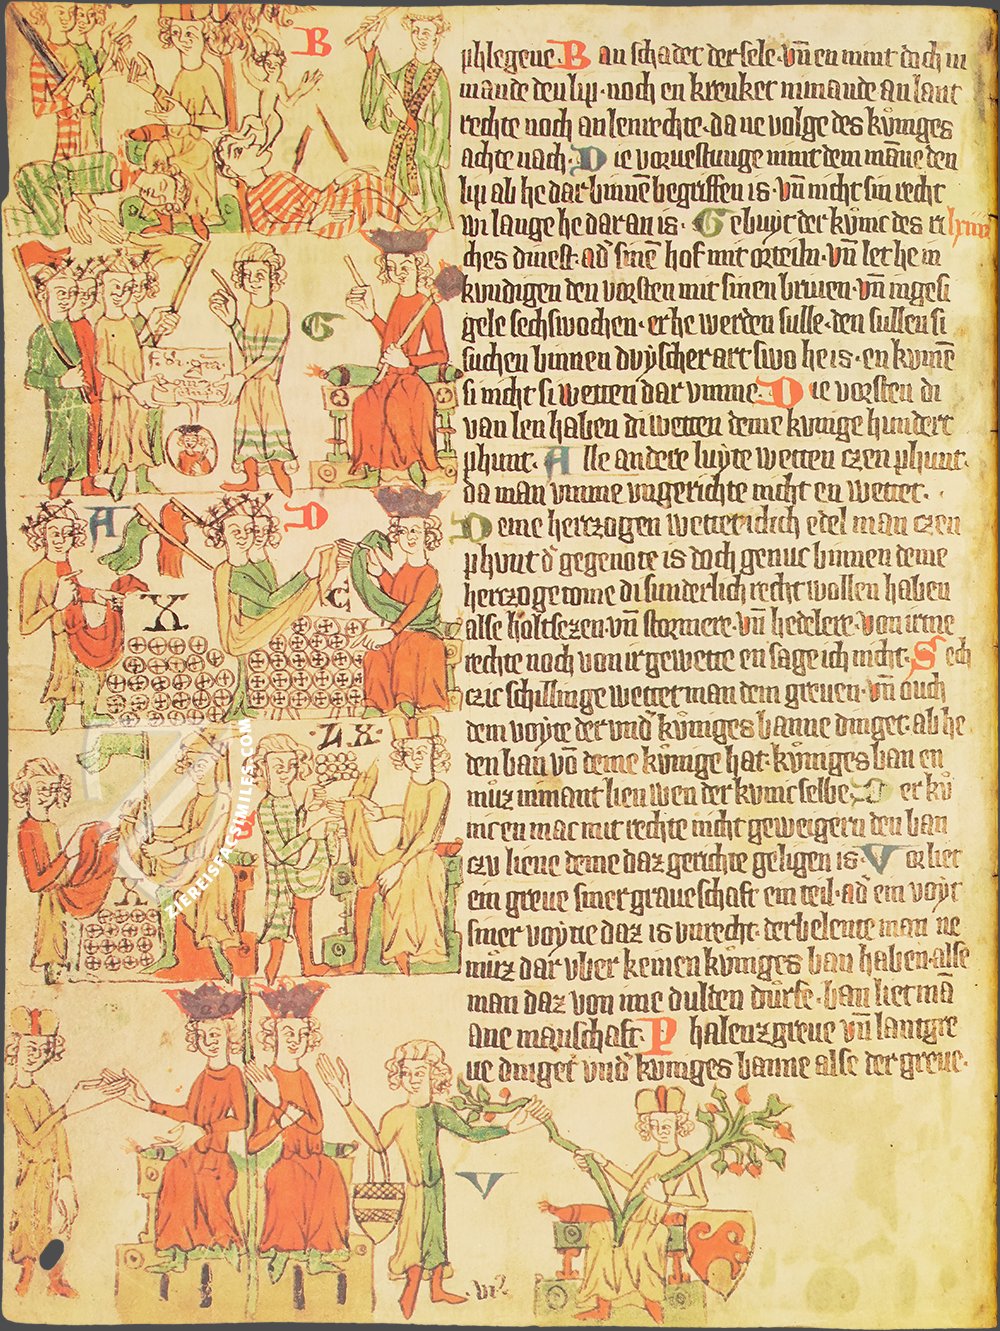 phlegene. B an schadet der sele. vn̄ en nimt doch ni
mande den lip. noch en krenket nimande an lant
rechte noch an lenrechte. da ne volge des kůniges
achte nach. D ie voruestunge nimt dem māne den
lip ab he dar binnē begriffen is. vn̄ nicht sin recht
wi lange he dar an is. G ebuyt der kůnic des ri
ches dinest. ad' sinē hof mit orteiln. vn̄ let he in
kundigen den vorsten mit sinen briuen. vn̄ ingesi
gele sechs wochen. er he werden sulle. den sullen si
suchen binnen duyscher art swo he is. en kumē
si nicht si wetten dar vmme. D ie vorsten di
van len haben di wetten deme kunige hundert
phunt. A lle andere luyte wetten czen phunt.
da man vmme vngerichte nicht en wettet.
D eme herczogen wettet idich edel man czen
phunt d' gegenote is doch genuc binnen deme
herczogetome di sunderlich recht wollen haben
alse holtsezen. vn̄ stormere. vn̄ hedelere. von irme
rechte noch von ir gewette en sage ich nicht. S ech
czic schillinge wettet man dem greuen. vn̄ ouch
dem voyte der vnd' kůniges banne dinget. ab he
den ban vō deme kůnige hat. kůniges ban en
můz nimant lien wen der kunic selbe. D er ků
nic en mac mit rechte nicht geweigern den ban
czu liene deme daz gerichte geligen is. V or liet
ein greue siner graueschaft ein teil. ad' ein voyt
siner voytie daz is vnrecht. der belente man ne
můz dar vber keinen kuniges ban haben. alse
man daz von ime dulden důrfe. ban liet mā
ane manschaft. P halenzgreue vn̄ lantgre
ue dinget vnd' kuniges banne alse der greue.
B
G
A
D
X
C
LX
X
V
ZIEREISFACSIMILES.COM